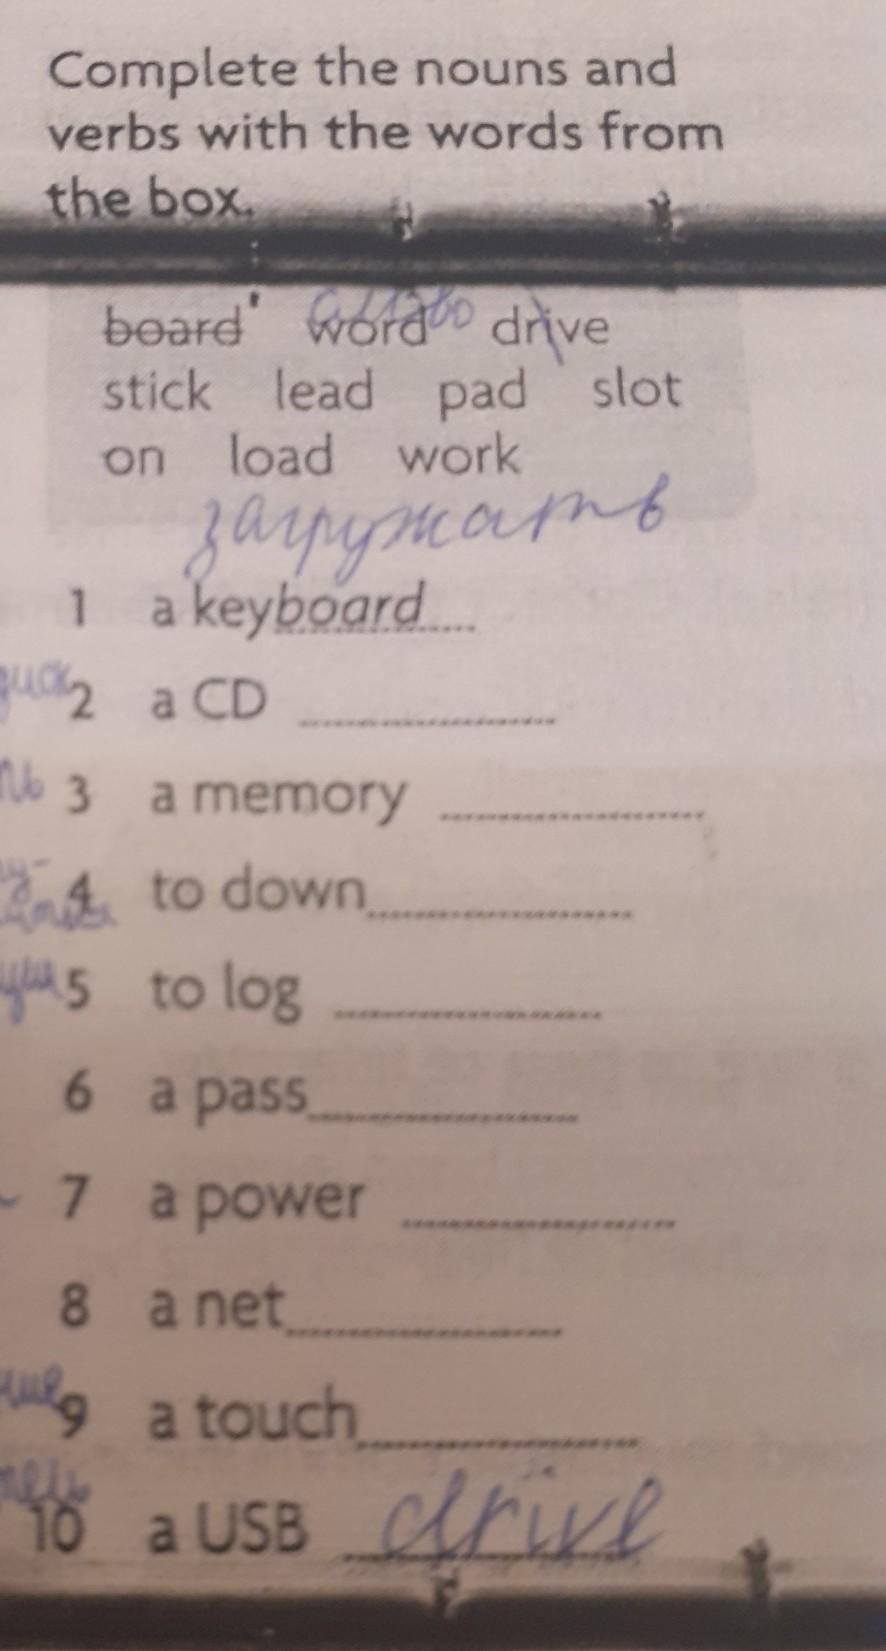 Complete the nouns and
verbs with the words from
the box.
слово
board word drive
stick lead pad slot
on load work
загружать
1 a keyboard
2 a CD
3 a memory
4 to down
5 to log
6 a pass
7 a power
8 a net
9 a touch
10 a USB drive